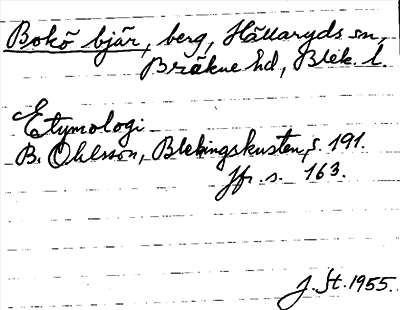 Bokö bjär, berg, Hällaryds sn,
Bräkne hd, Blek. l.
Etymologi
B. Ohlsson, Blekingskusten, s. 191.
Jfr s. 163.
J. St. 1955.